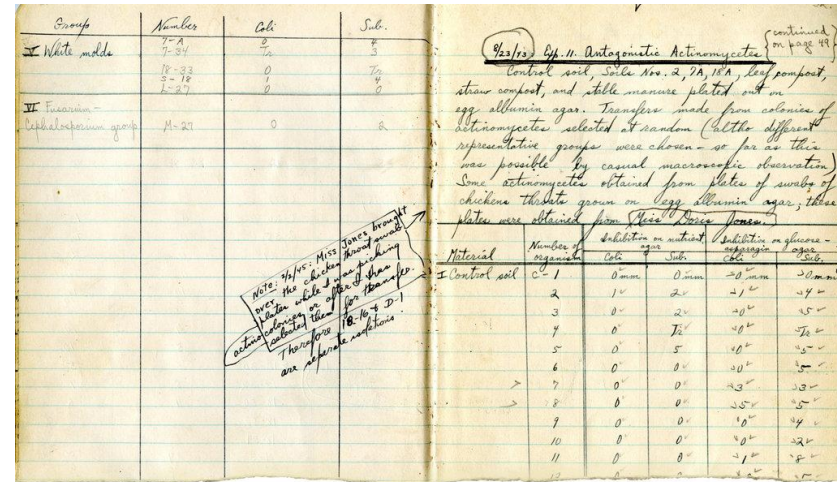 Group Number Coli Sub.
7-A 0 4
V White molds 7-34 Tr 3
18-33 0 Tr
S-18 1 4
L-27 0 0
VI Fusarium-
Cephalosporium group M-27 0 2
Note: 2/2/45: Miss Jones brought
over the chicken throat swab
plates while I was picking
actino colonies or after I had
selected them for transfer.
Therefore 18-16 & D-1
are separate isolations!
8/23/43: Exp. 11. Antagonistic Actinomycetes
{continued
on page 49}
Control soil, Soils Nos. 2, 7A, 18A, leaf compost,
straw compost, and stable manure plated out on
egg albumin agar. Transfers made from colonies of
actinomycetes selected at random (altho different
representative groups were chosen - so far as this
was possible by casual macroscopic observation)
Some actinomycetes obtained from plates of swabs of
chickens throats grown on egg albumin agar; these
plates were obtained from Miss Doris Jones.
Material Number of organism Inhibition on nutrient agar Inhibition on glucose-asparagin agar
Coli Sub. Coli Sub.
I Control soil C-1 0 mm 0 mm 0 mm 0 mm
2 1 2 1 4
3 0 2 0 5
4 0 Tr 0 Tr
5 0 5 0 5
6 0 0 0 5
7 0 0 3 3
8 0 0 5 5
9 0 0 0 4
10 0 0 0 2
11 0 0 1 8